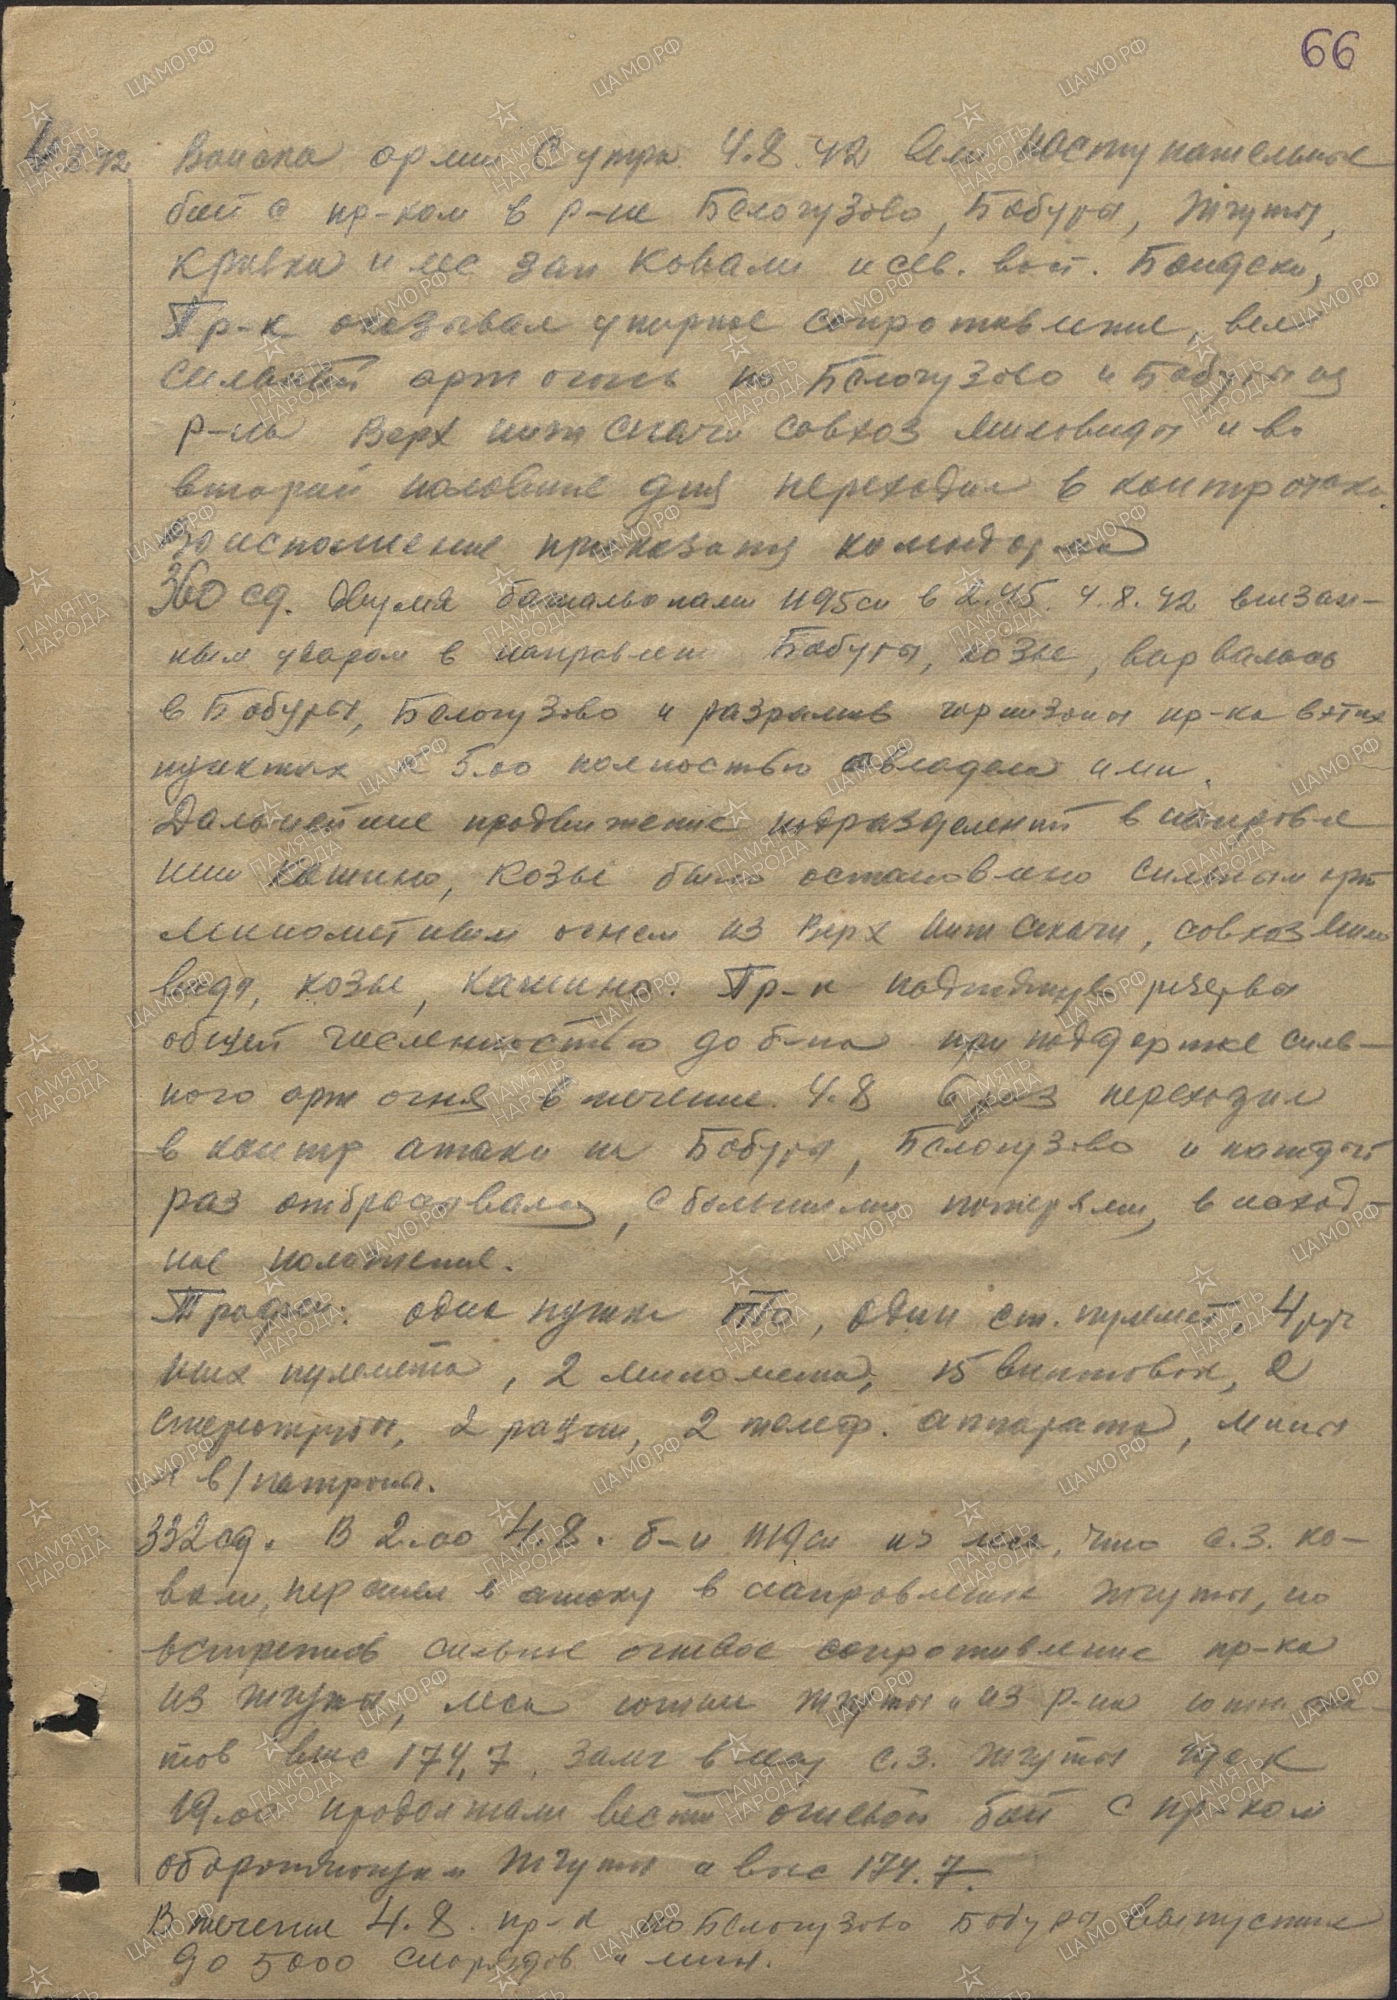 66
4.8.42 Войска армии с утра 4.8.42 вели наступательные
бои с пр-ком в р-не Белогузово, Бабуры, Жгуты,
Кривки и лес зап Ковали и сев. вост.
Пр-к оказывал упорное сопротивление, вел
сильный арт огонь по Белогузово и Бабуры из
р-на Верх ниж Скачи совхоз Миловиды и во
второй половине дня переходил в контратаки
Во исполнение приказания командарма
360 сд. Двумя батальонами 1195 сп в 2.45. 4.8.42 внезап-
ным ударом в направлен Бабуры, Козье, ворвалась
в Бабуры, Белогузово и разгромив гарнизоны пр-ка в этих
пунктах к 5.00 полностью овладела ими.
Дальнейшие продвижение подразделений в направле
нии Кошино, Козье было остановлено сильным арт
минометным огнем из Верх ниж Скачи, совхоз Мило
виды, Козье, Кошино. Пр-к подтянув резервы
общей численностью до б-на при поддержке силь-
ного арт огня в течение 4.8 6 раз переходил
в контр атаки на Бабуры, Белогузово и каждый
раз отбрасывался, с большими потерями, в исход-
ное положение.
Трофеи: одна пушка ПТО, один ст. пулемет, 4 руч
ных пулемета, 2 миномета, 15 винтовок, 2
стереотрубы, 2 рации, 2 телеф. аппарата, мины
и в/патроны.
332 сд. В 2.00 4.8. б-н 1119 сп из леса, что с.з. Ко-
вали, перешел в атаку в направлении Жгуты, но
встретив сильное огневое сопротивление пр-ка
из Жгуты, леса южнее Жгуты и из р-на южн ска-
тов выс 174,7, залег в лесу с.з. Жгуты где к
19.00 продолжали вести огневой бой с пр-ком
обороняющим Жгуты и выс 174.7.
В течение 4.8. пр-к по Белогузово Бабуры выпустил
до 5000 снарядов и мин.
ПАМЯТЬ НАРОДА
ЦАМО.РФ